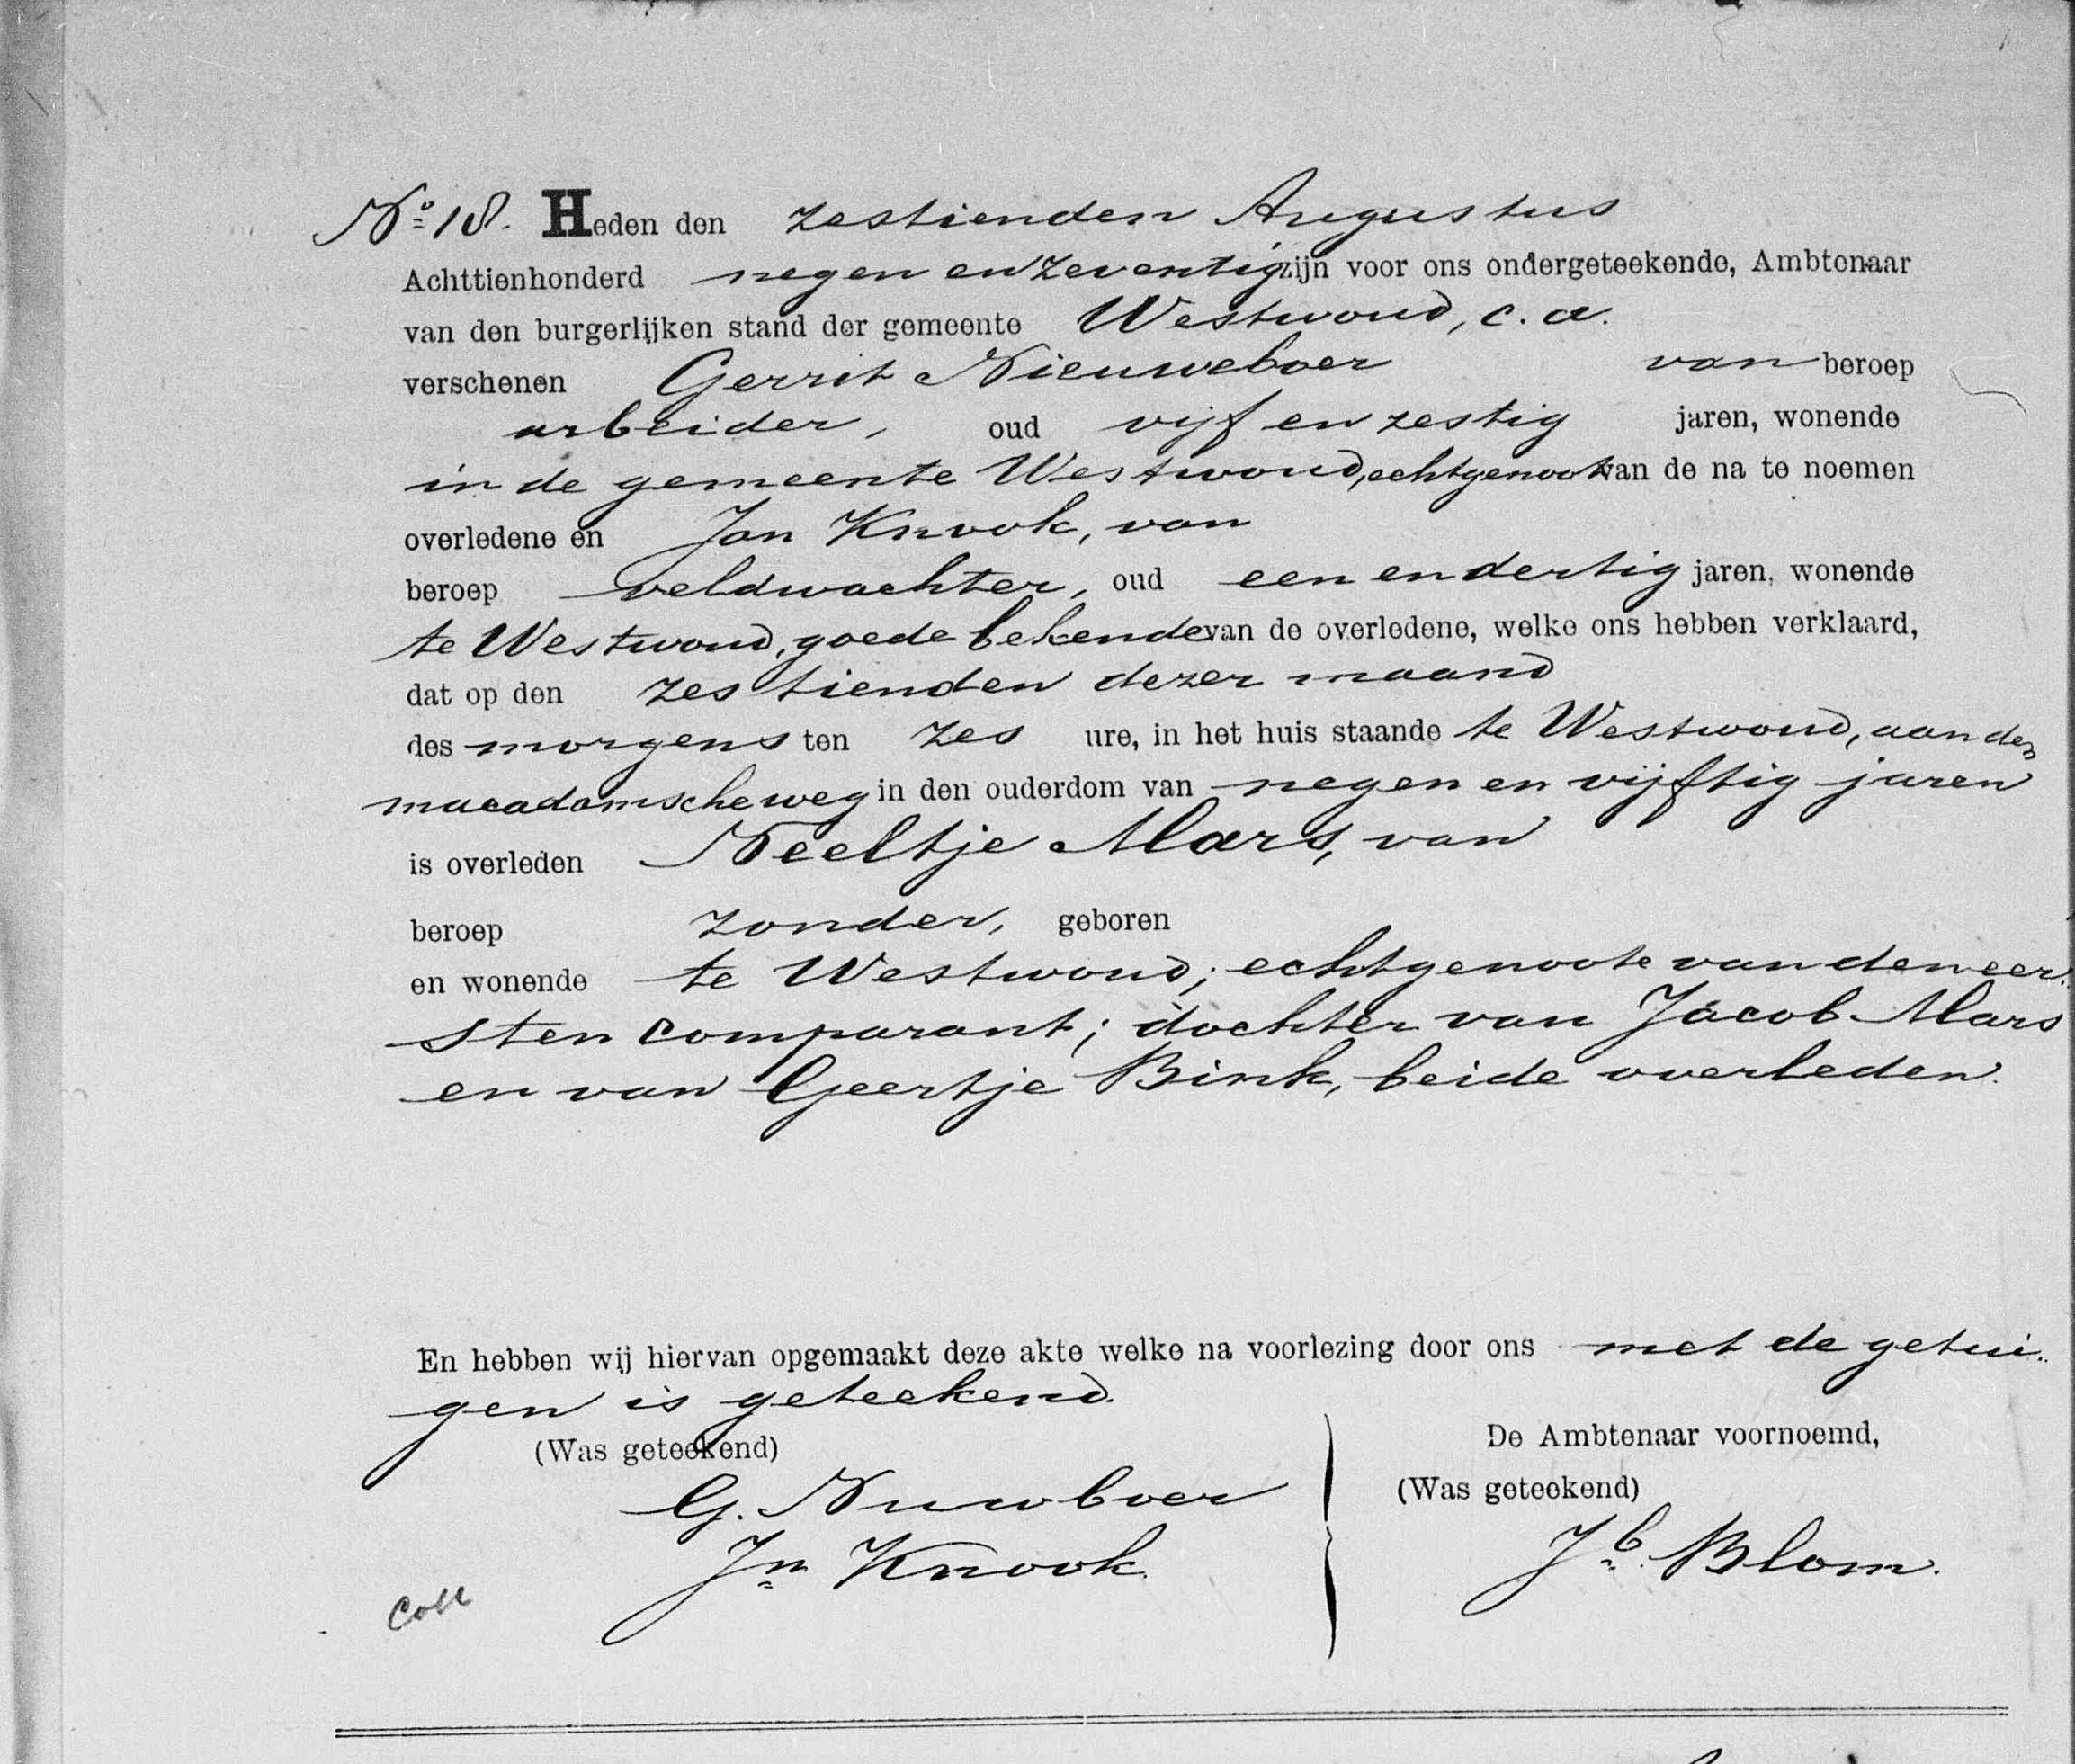 No 18. Heden den zestienden Augustus
Achttienhonderd negen en zeventig zijn voor ons ondergeteekende, Ambtenaar
van den burgerlijken stand der gemeente Westwoud, c. a.
verschenen Gerrit Nieuweboer van beroep
arbeider, oud vijf en zestig jaren, wonende
in de gemeente Westwoud, echtgenoot van de na te noemen
overledene en Jan Knook, van
beroep veldwachter, oud een en dertig jaren, wonende
te Westwoud, goede bekende van de overledene, welke ons hebben verklaard,
dat op den zestienden dezer maand
des morgens ten zes ure, in het huis staande te Westwoud, aan den
macadamscheweg in den ouderdom van negen en vijftig jaren
is overleden Neeltje Mars, van
beroep zonder, geboren
en wonende te Westwoud; echtgenoote van den eer-
sten comparant; dochter van Jacob Mars
en van Geertje Bink, beide overleden.
En hebben wij hiervan opgemaakt deze akte welke na voorlezing door ons met de getui-
gen is geteekend.
(Was geteekend)
G. Nuwboer
Jn Knook.
De Ambtenaar voornoemd,
(Was geteekend)
Jb. Blom.
Coll